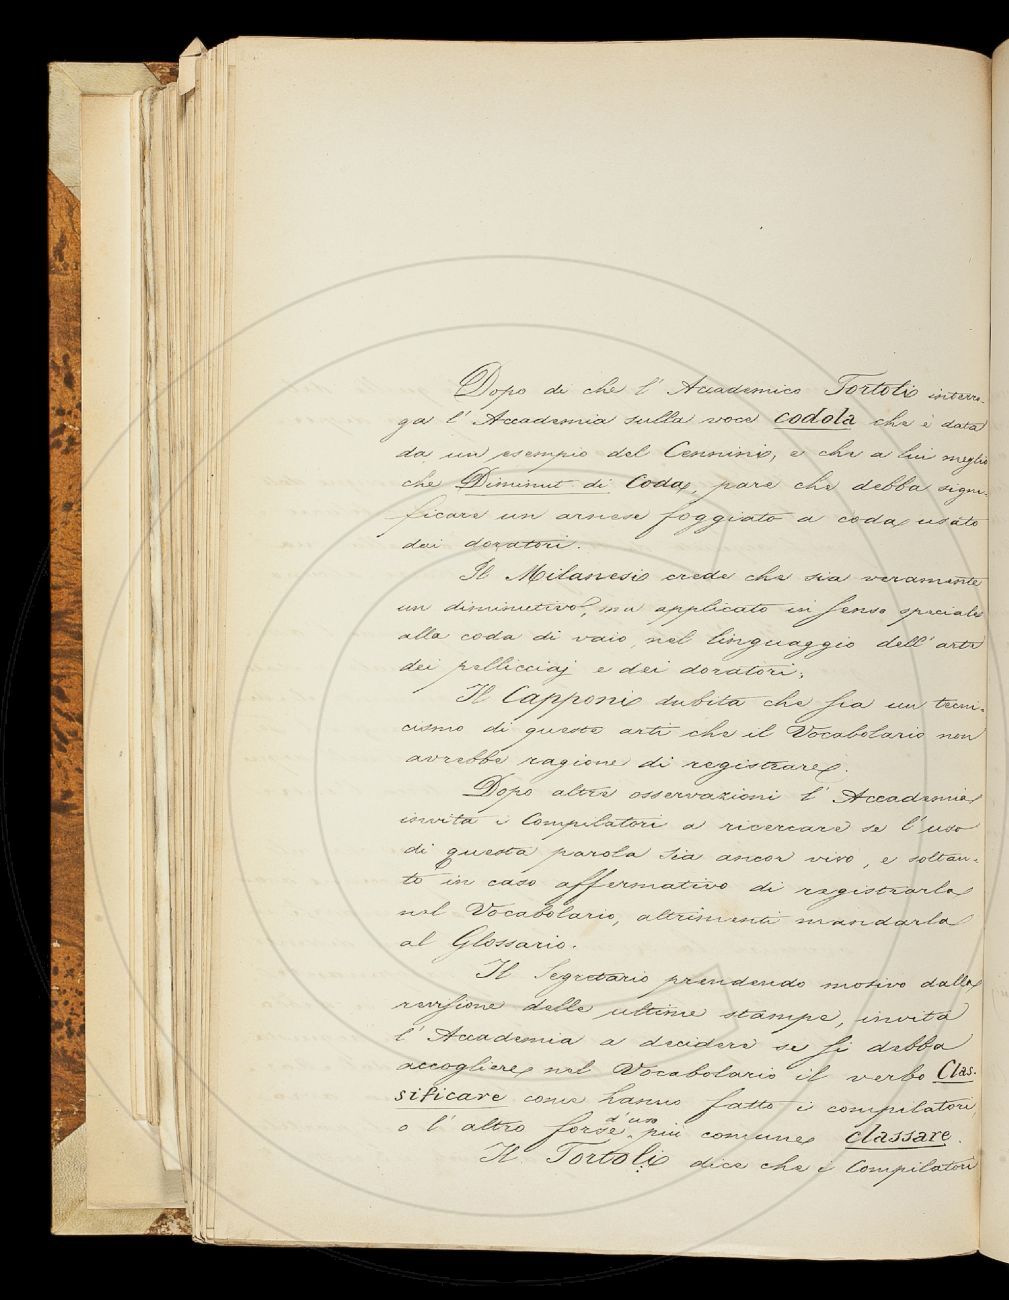 Dopo di che l' Accademico Tortoli interro-
ga l' Accademia sulla voce codola che è data
da un esempio del Cennini, e che a lui meglio
che Diminut di Coda, pare che debba signi-
ficare un arnese foggiato a coda usato
dai doratori.
Il Milanesi crede che sia veramente
un diminutivo, ma applicato in senso speciale
alla coda di vaio, nel linguaggio dell' arte
dei pellicciaj e dei doratori.
Il Capponi dubita che sia un tecni-
cismo di queste arti che il Vocabolario non
avrebbe ragione di registrare.
Dopo altre osservazioni l' Accademia
invita i Compilatori a ricercare se l' uso
di questa parola sia ancor vivo, e soltan-
to in caso affermativo di registrarla
nel Vocabolario, altrimenti mandarla
al Glossario.
Il Segretario prendendo motivo dalla
revisione delle ultime stampe, invita
l' Accademia a decidere se si debba
accogliere nel Vocabolario il verbo Clas-
sificare come hanno fatto i compilatori
o l' altro forse d' uso più comune classare.
Il Tortoli dice che i Compilatori